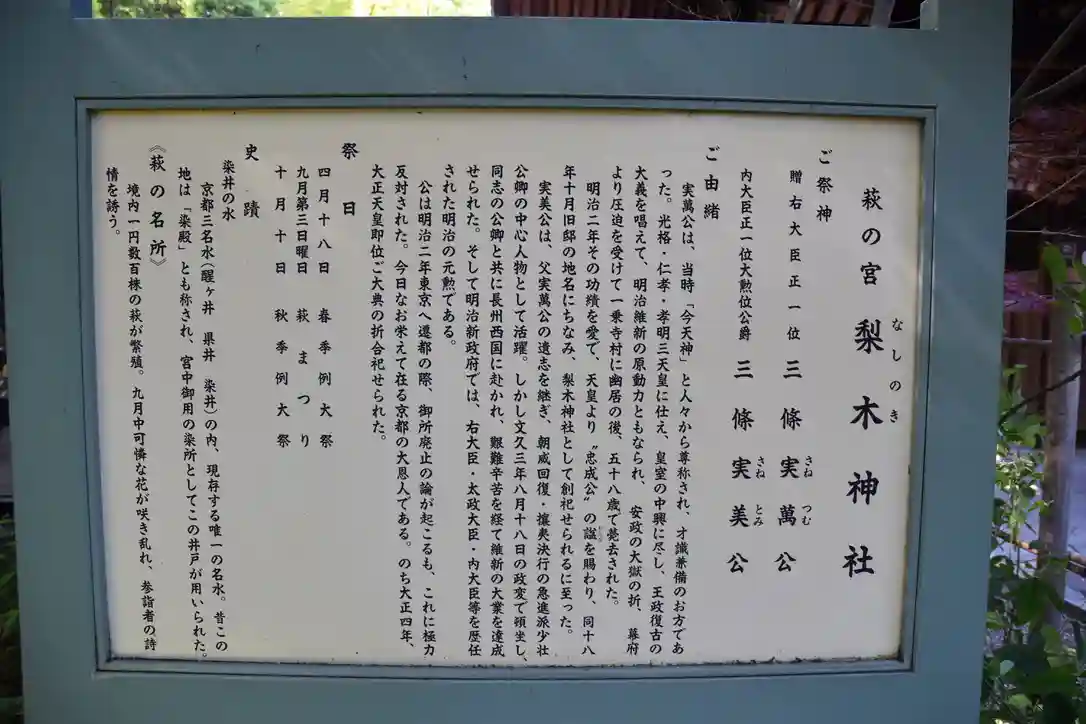 萩の宮 梨木神社
なしのき
ご祭神
贈右大臣正一位 三條実萬公
さねつむ
内大臣正一位大勲位公爵 三條実美公
さねとみ
ご由緒
実萬公は、当時「今天神」と人々から尊称され、才識兼備のお方であ
った。光格・仁孝・孝明三天皇に仕え、皇室の中興に尽し、王政復古の
大義を唱えて、明治維新の原動力ともなられ、安政の大獄の折、幕府
より圧迫を受けて一乗寺村に幽居の後、五十八歳で薨去された。
明治二年その功績を愛で、天皇より〝忠成公〟の諡を賜わり、同十八
年十月旧邸の地名にちなみ、梨木神社として創祀せられるに至った。
実美公は、父実萬公の遺志を継ぎ、朝威回復・攘夷決行の急進派少壮
公卿の中心人物として活躍。しかし文久三年八月十八日の政変で領坐し、
同志の公卿と共に長州西国に赴かれ、艱難辛苦を経て維新の大業を達成
せられた。そして明治新政府では、右大臣・太政大臣・内大臣等を歴任
された明治の元勲である。
公は明治二年東京へ遷都の際、御所廃止の論が起こるも、これに極力
反対された。今日なお栄えて在る京都の大恩人である。のち大正四年、
大正天皇即位ご大典の折合祀せられた。
祭日
四月十八日 春季例大祭
九月第三日曜日 萩まつり
十月十日 秋季例大祭
史蹟
染井の水
京都三名水(醒ヶ井 県井 染井)の内、現存する唯一の名水。昔この
地は「染殿」とも称され、宮中御用の染所としてこの井戸が用いられた。
《萩の名所》
境内一円数百株の萩が繁殖。九月中可憐な花が咲き乱れ、参詣者の詩
情を誘う。